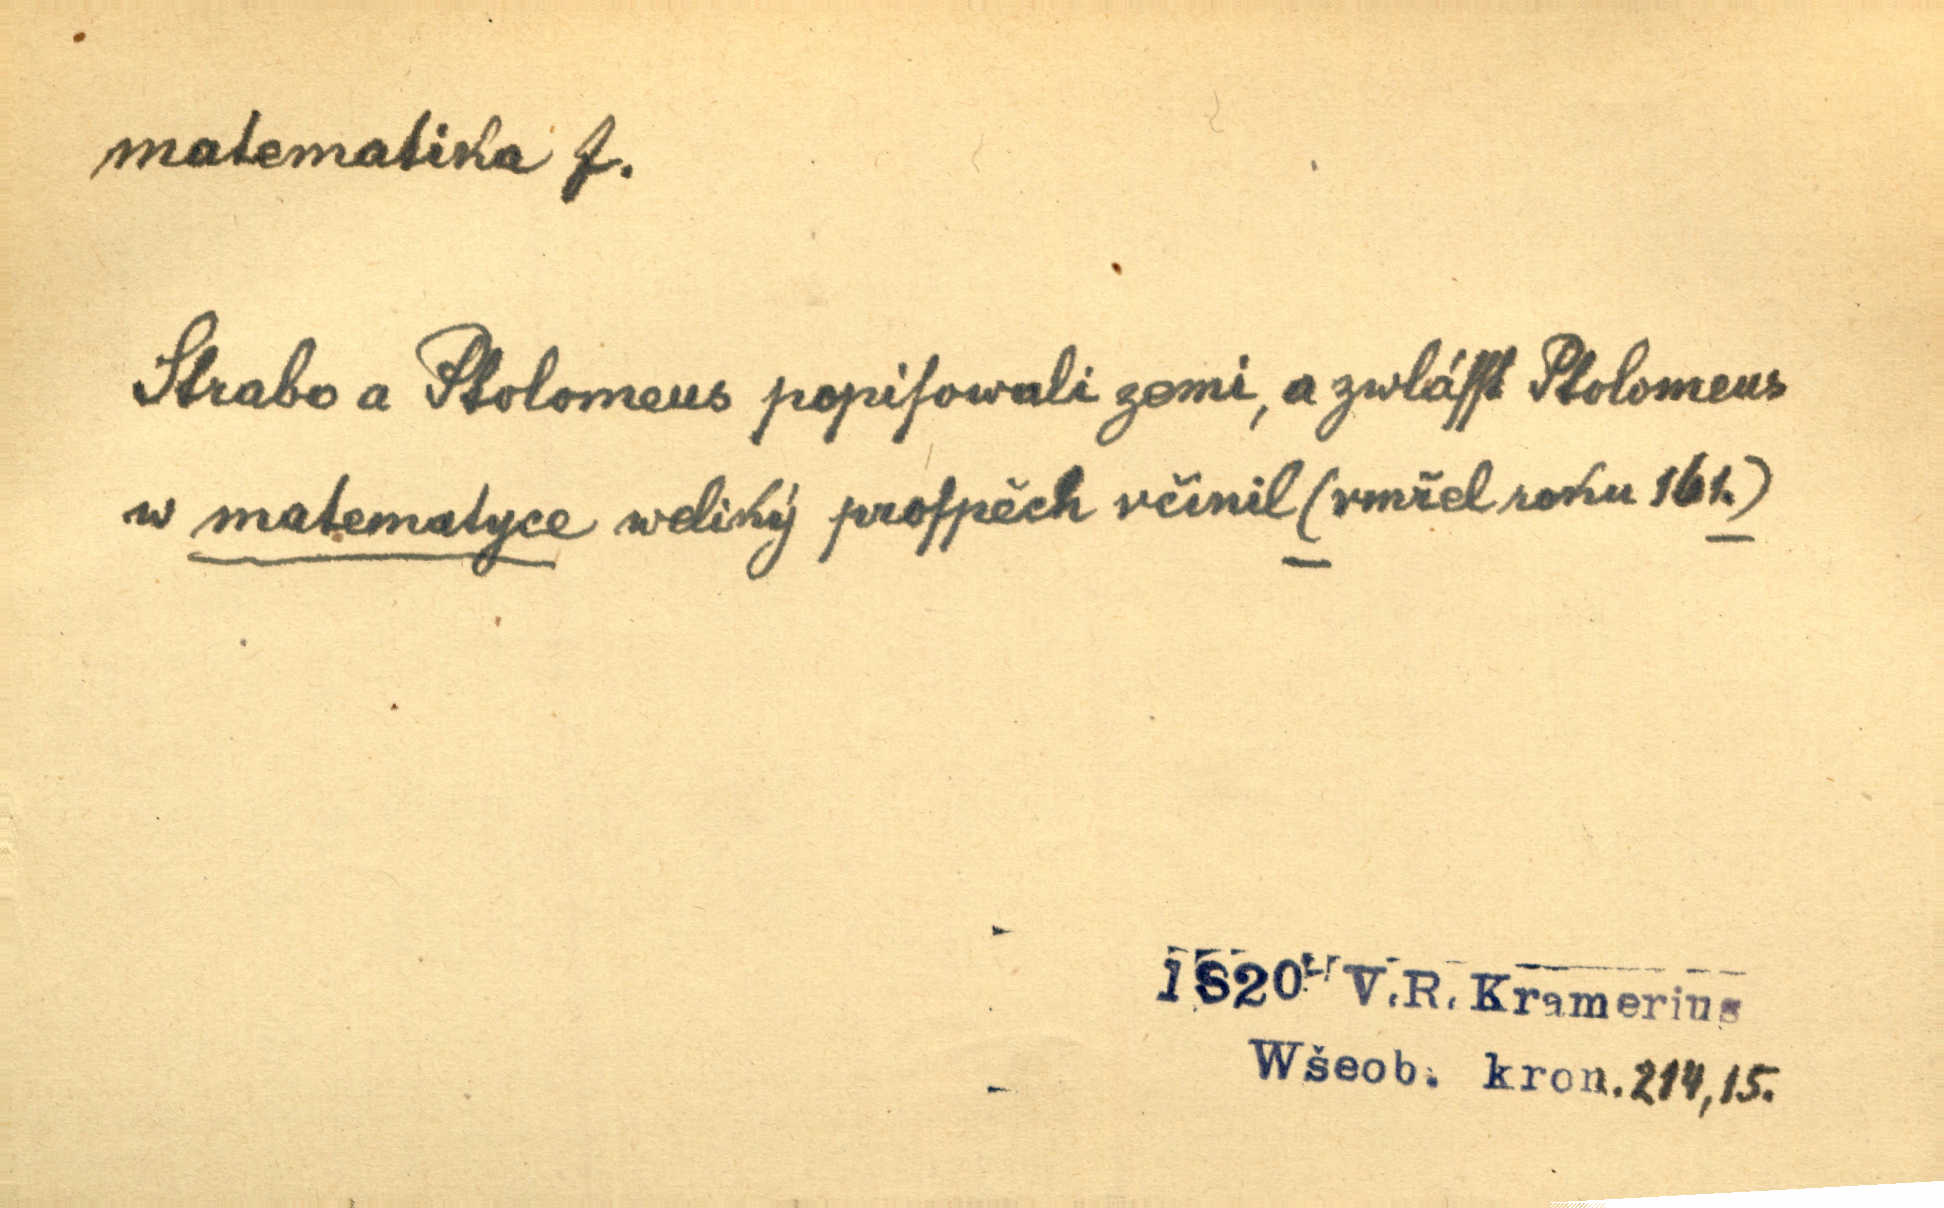 matematika f.
Strabo a Ptolomeus popiſowali zemi, a zwláſſt Ptolomeus
w matematyce weliký proſpěch včinil (vmřel roku 161.)
1820 V.R. Kramerius
Wšeob. kron. 214, 15.